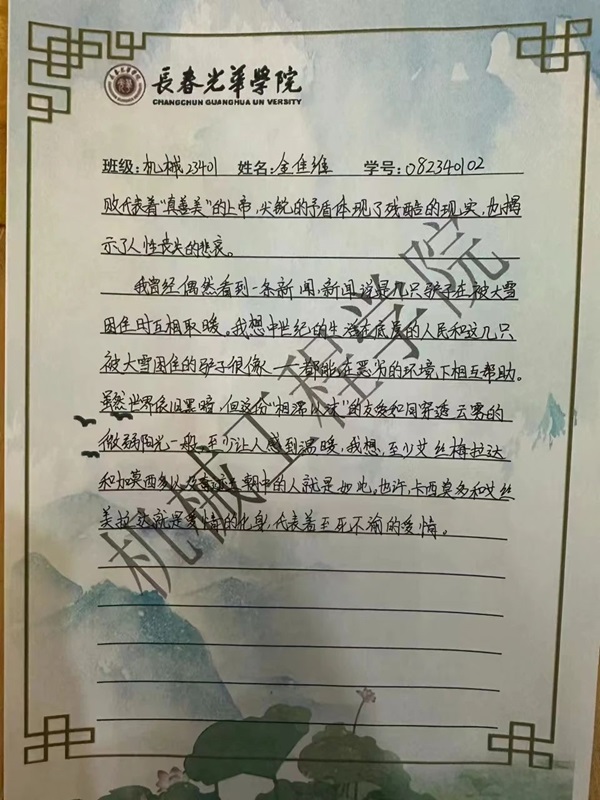 長春光華學院
CHANGCHUN GUANGHUA UN VERSITY
班级:机械23401 姓名:金佳维 学号:082340102
败代表着“真善美”的上帝,尖锐的矛盾体现了残酷的现实,也揭
示了人性丧失的悲哀。
我曾经偶然看到一条新闻,新闻说是几只驴子在被大雪
困住时互相取暖。我想中世纪的生活在底层的人民和这几只
被大雪困住的驴子很像——都能在恶劣的环境下相互帮助。
虽然世界依旧黑暗,但这份“相濡以沫”的友爱如同穿透云雾的
微弱阳光一般,至少让人感到温暖,我想,至少艾丝梅拉达
和加莫西多以及 朝中的人就是如此。也许,卡西莫多和艾丝
美拉达就是爱情的化身,代表着至死不渝的爱情。
机械工程学院